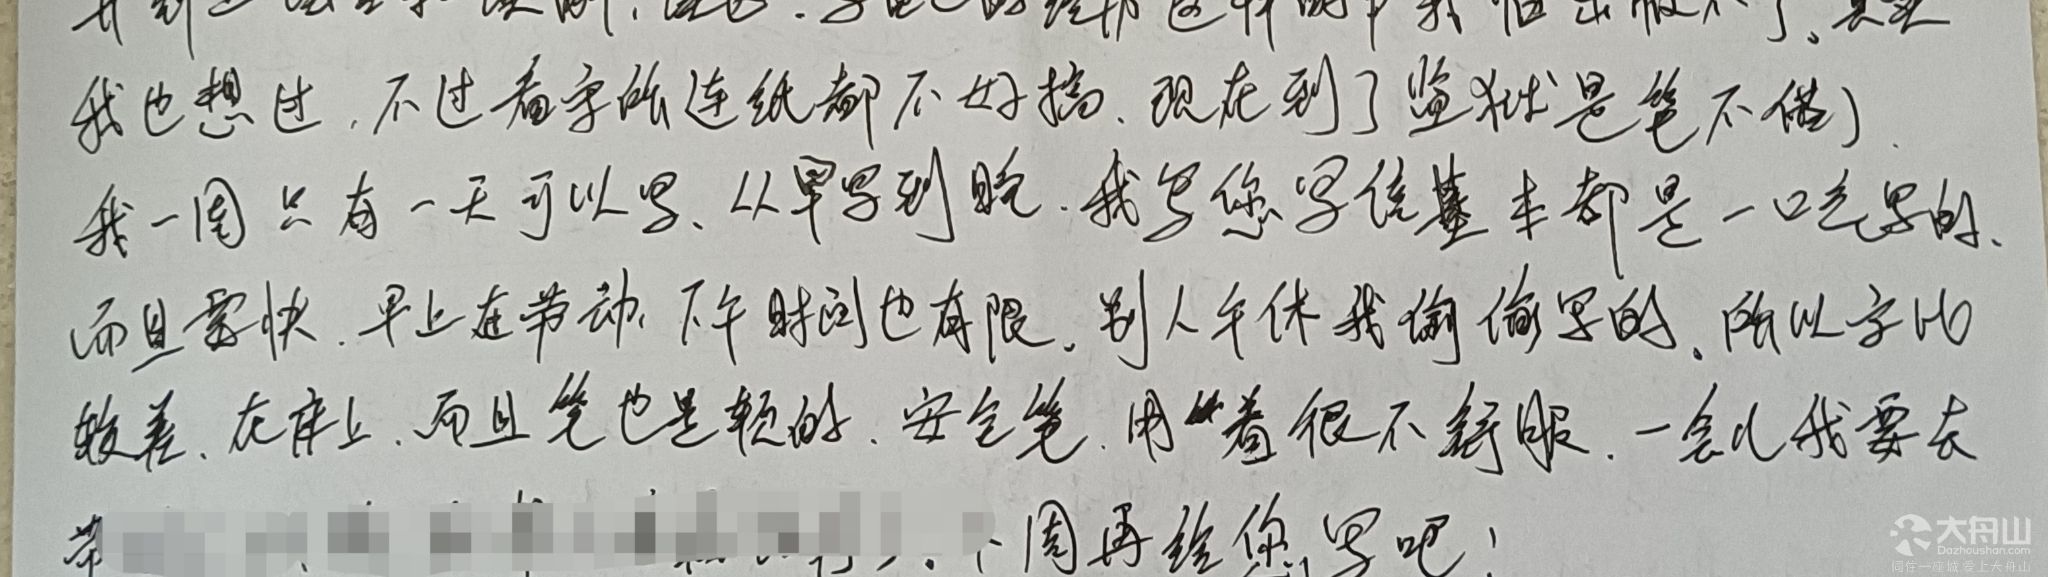 我也想过，不过看守所连纸都不好搞、现在到了监狱是笔不借了、
我一周只有一天可以写、从早写到晚.我写您写信基本都是一口气写的、
而且要快.早上在劳动、下午时间也有限。别人午休我偷偷写的、所以字比
较差、在床上、而且笔也是软的、安全笔、用着很不舒服、一会儿我要去
周再给您写吧！
大舟山
Dazhoushan.com
同住一座城 爱上大舟山